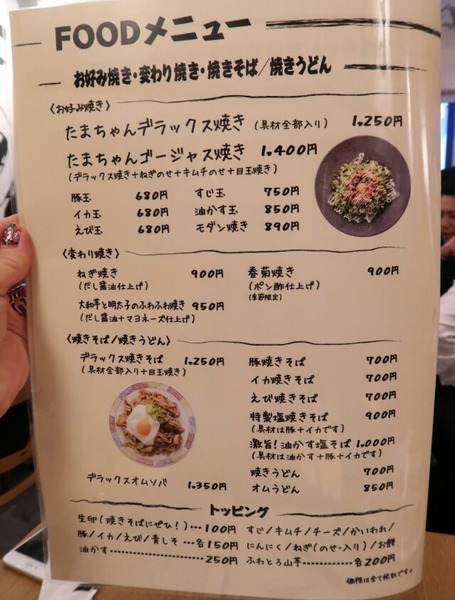 FOODメニュー
お好み焼き・変わり焼き・焼きそば/焼きうどん
〈お好み焼き〉
たまちゃんデラックス焼き (具材全部入り) 1,250円
たまちゃんゴージャス焼き 1,400円
(デラックス焼き+ねぎのせ+キムチのせ+目玉焼き)
豚玉 680円
イカ玉 680円
えび玉 680円
すじ玉 750円
油かす玉 850円
モダン焼き 890円
〈変わり焼き〉
ねぎ焼き 900円
(だし醤油仕上げ)
大和芋と明太子のふわふわ焼き 950円
(だし醤油+マヨネーズ仕上げ)
春菊焼き 900円
(ポン酢仕上げ)
(季節限定)
〈焼きそば/焼きうどん〉
デラックス焼きそば 1,250円
(具材全部入り+目玉焼き)
デラックスオムソバ 1,350円
豚焼きそば 700円
イカ焼きそば 700円
えび焼きそば 700円
特製塩焼きそば 900円
(具材は豚+イカです)
激旨!油かす塩そば 1,000円
(具材は油かす+豚+イカです)
焼きうどん 700円
オムうどん 850円
トッピング
生卵(焼きそばにぜひ!)…100円
豚/イカ/えび/青しそ…各150円
油かす………………250円
すじ/キムチ/チーズ/かいわれ/
にんにく/ねぎ(のせ・入り)/お餅
ふわとろ山芋………各200円
価格は全て税別です。